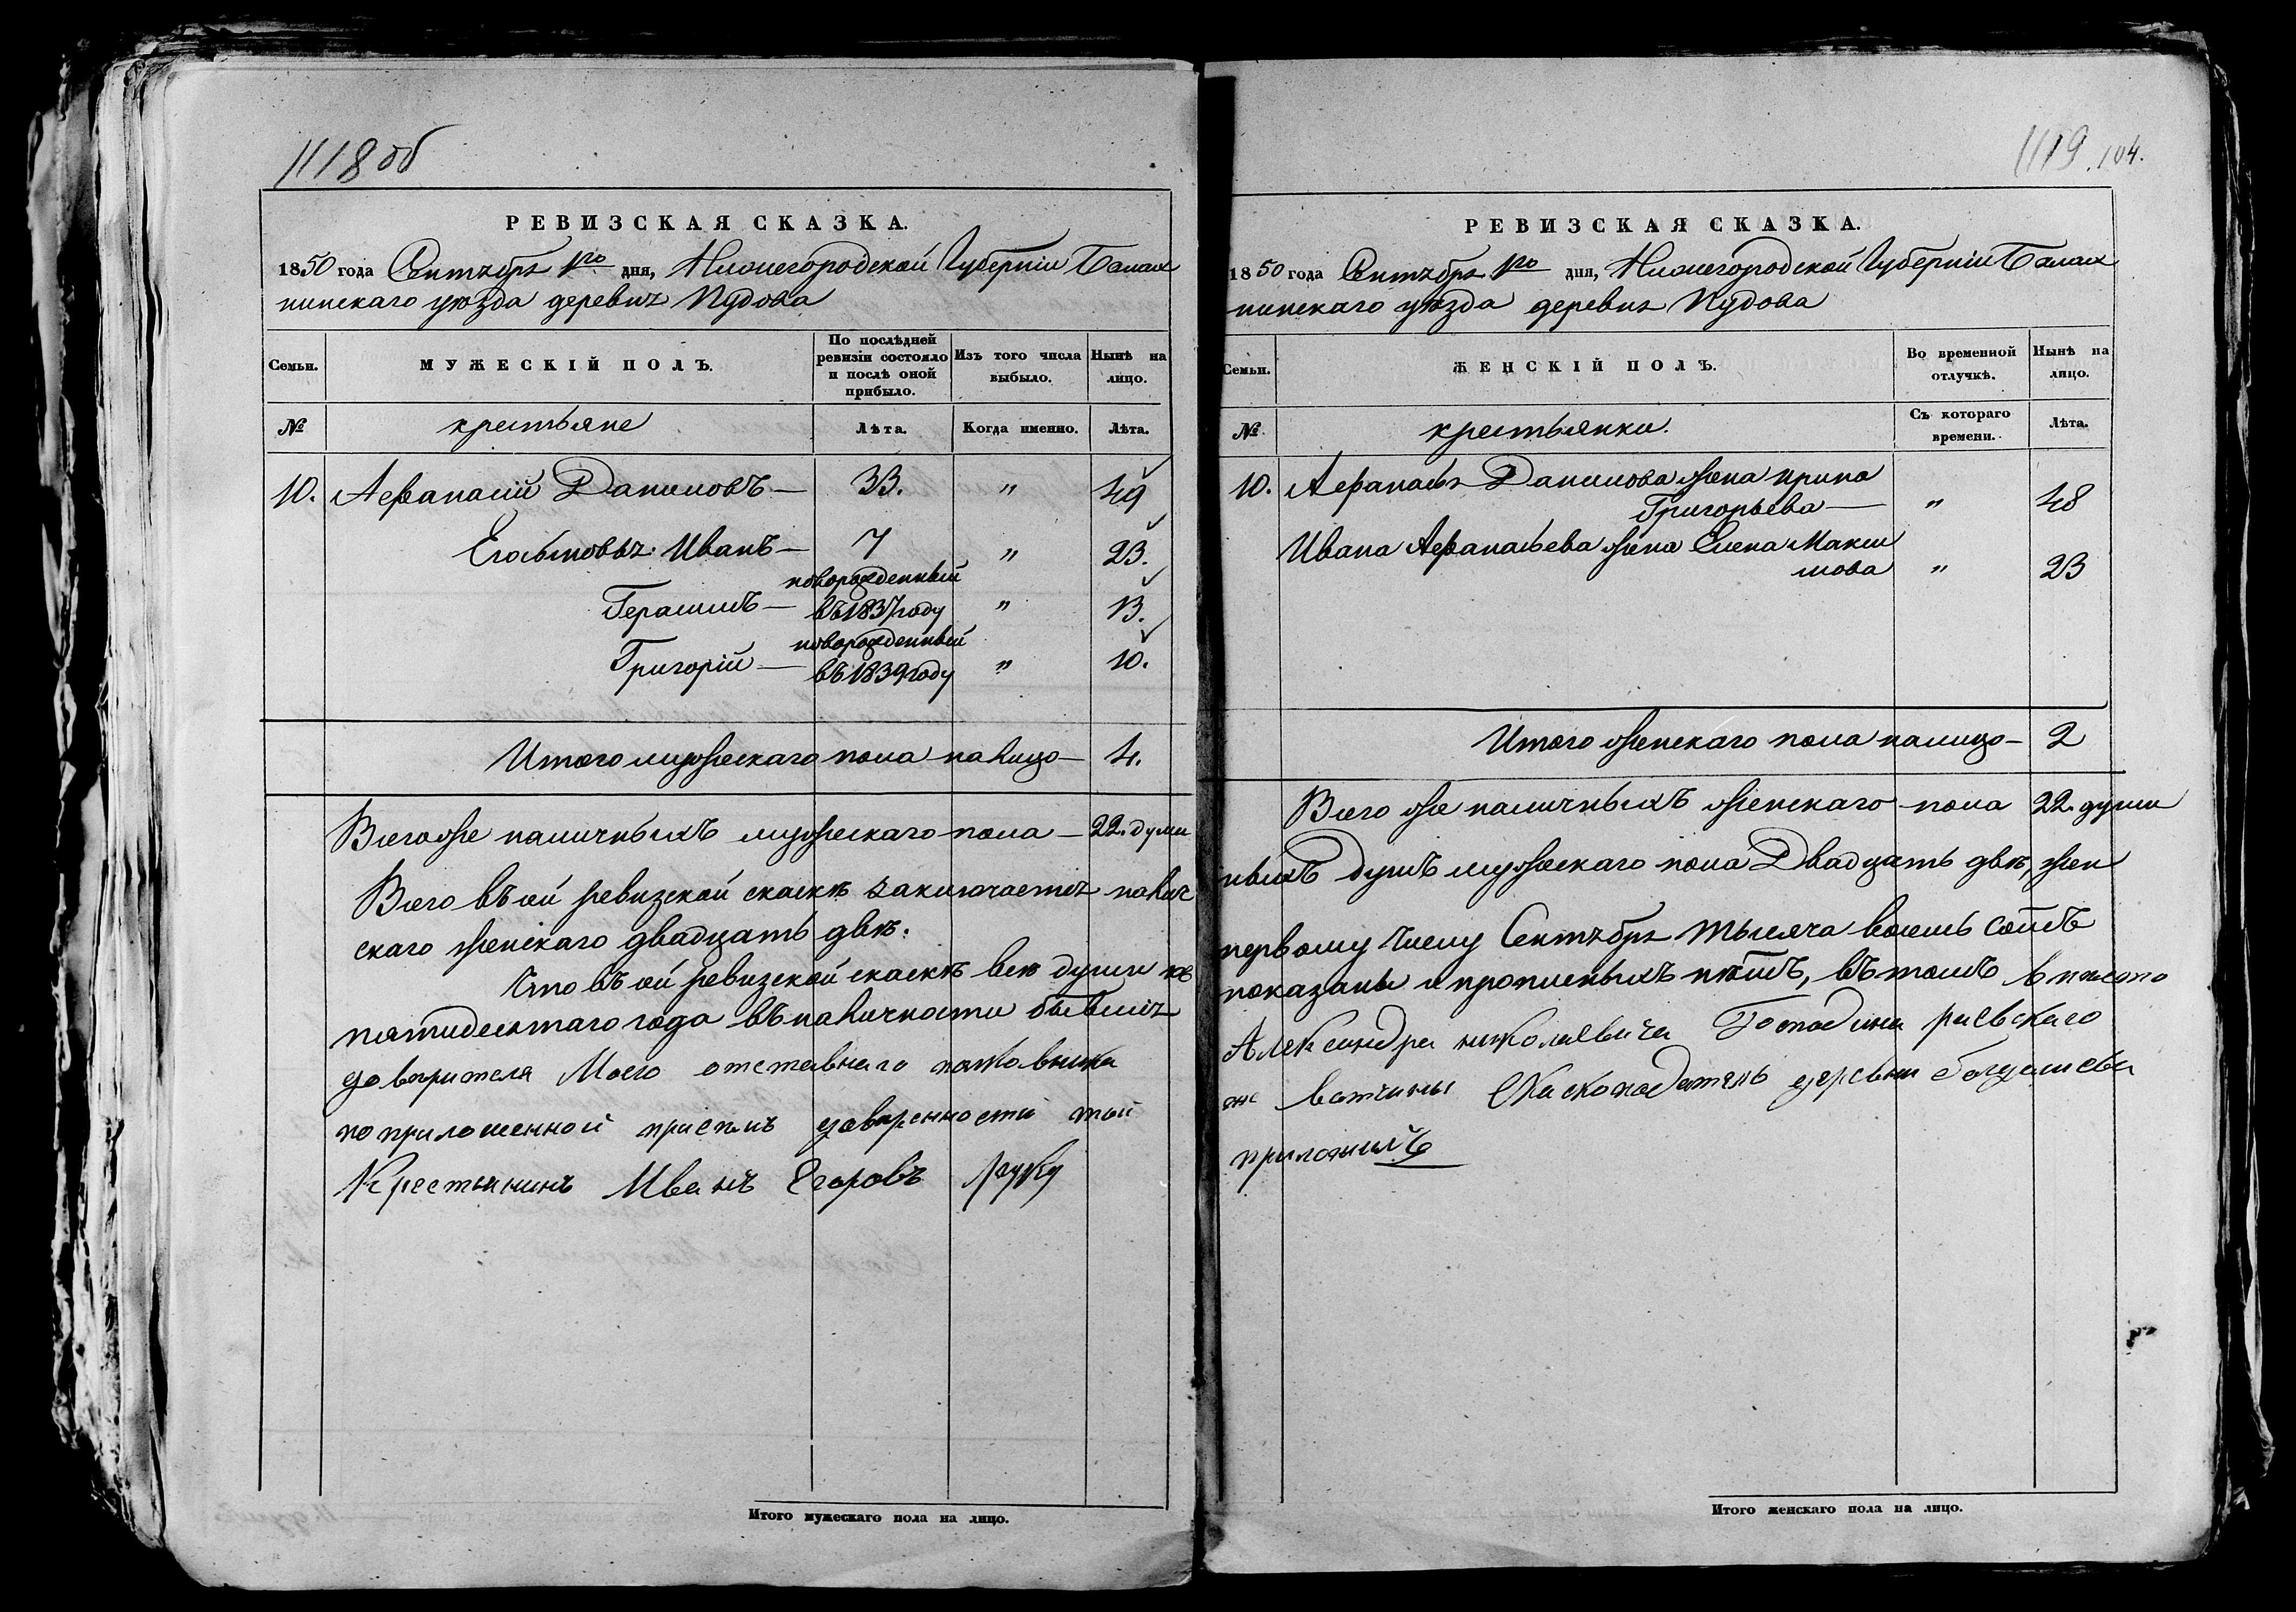 1118 об
РЕВИЗСКАЯ СКАЗКА.
1850 года Сентября 1го дня, Нижегородской Губерніи Балах
нинскаго уѣзда деревня Пудова
Семьи.
МУЖЕСКІЙ ПОЛЪ.
По послѣдней
ревизіи состояло
и послѣ оной
прибыло.
Изъ того числа
выбыло.
Нынѣ на
лицо.
№
крестьяне
Лѣта.
Когда именно.
Лѣта.
10. Афанасій Даниловъ — 33. " 49
Егосыновья: Иванъ — 7 " 23.
новорожденный
Герасимъ — въ 1837 году " 13.
новорожденный
Григорій — въ 1839 году " 10.
Итого мужескаго пола налицо — 4.
Всего же наличныхъ мужескаго пола — 22. души
Всего въ сей ревизской сказкѣ заключается налич
скаго женскаго двадцать двѣ.
Что въ сей ревизской сказкѣ всѣ души къ
пятидесятаго года въ наличности бывшія
довѣрителя Моего отставнаго полковника
по приложенной присемъ довѣренности той
Крестьянинъ Иванъ Егоровъ руку
Итого мужескаго пола на лицо.
1119. 104.
РЕВИЗСКАЯ СКАЗКА.
1850 года Сентября 1го дня, Нижегородской Губерніи Балах
нинскаго уѣзда деревня Пудова
Семьи.
ЖЕНСКІЙ ПОЛЪ.
Во временной
отлучкѣ.
Нынѣ на
лицо.
№
крестьянки.
Съ котораго
времени.
Лѣта.
10. Афанасья Данилова жена Ирина
Григорьева — " 48
Ивана Афанасьева жена Елена Макси
мова " 23
Итого женскаго пола налицо — 2
Всего же наличныхъ женскаго пола 22. души
ныхъ душъ мужескаго пола Двадцать двѣ, жен
первому числу Сентября тысяча восемь сотъ
показаны и прописныхъ нѣтъ, въ томъ
Александра николаевича Господина
же вотчины Сказкоподатель деревни
приложилъ
Итого женскаго пола на лицо.